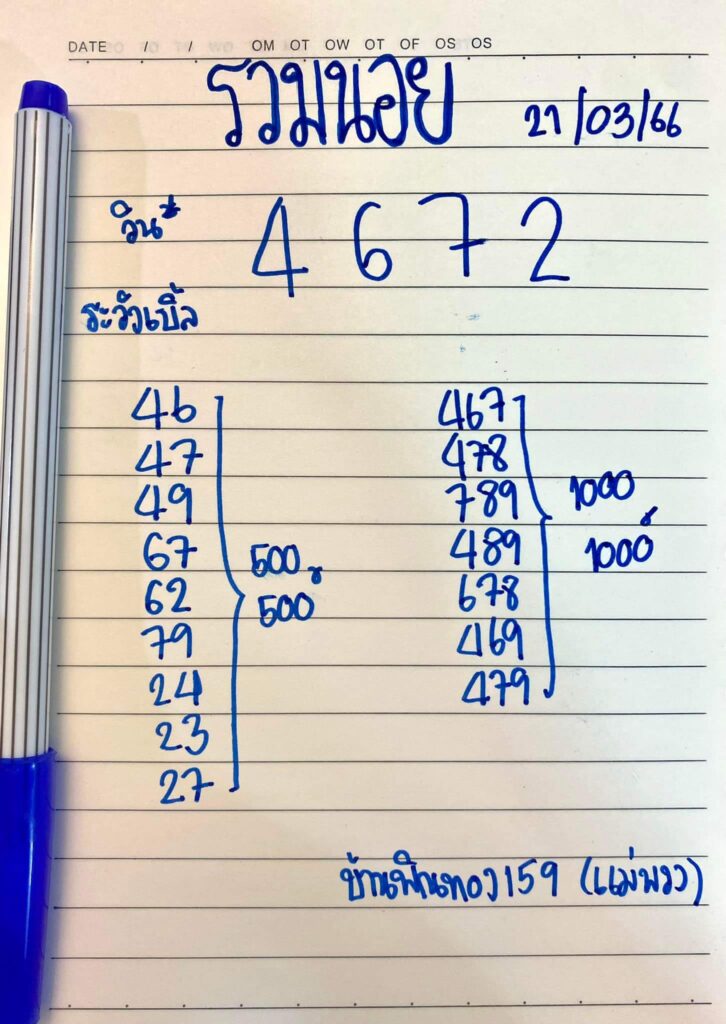 DATE / / OM OT OW OT OF OS OS
รวมนอย 21/03/66
วิน* 4 6 7 2
ระวังเบิ้ล
46
47
49
67
62
79
24
23
27
500
x
500
467
478
789
489
678
469
479
1000
x
1000
บ้านพินทอง159 (แม่พวง)